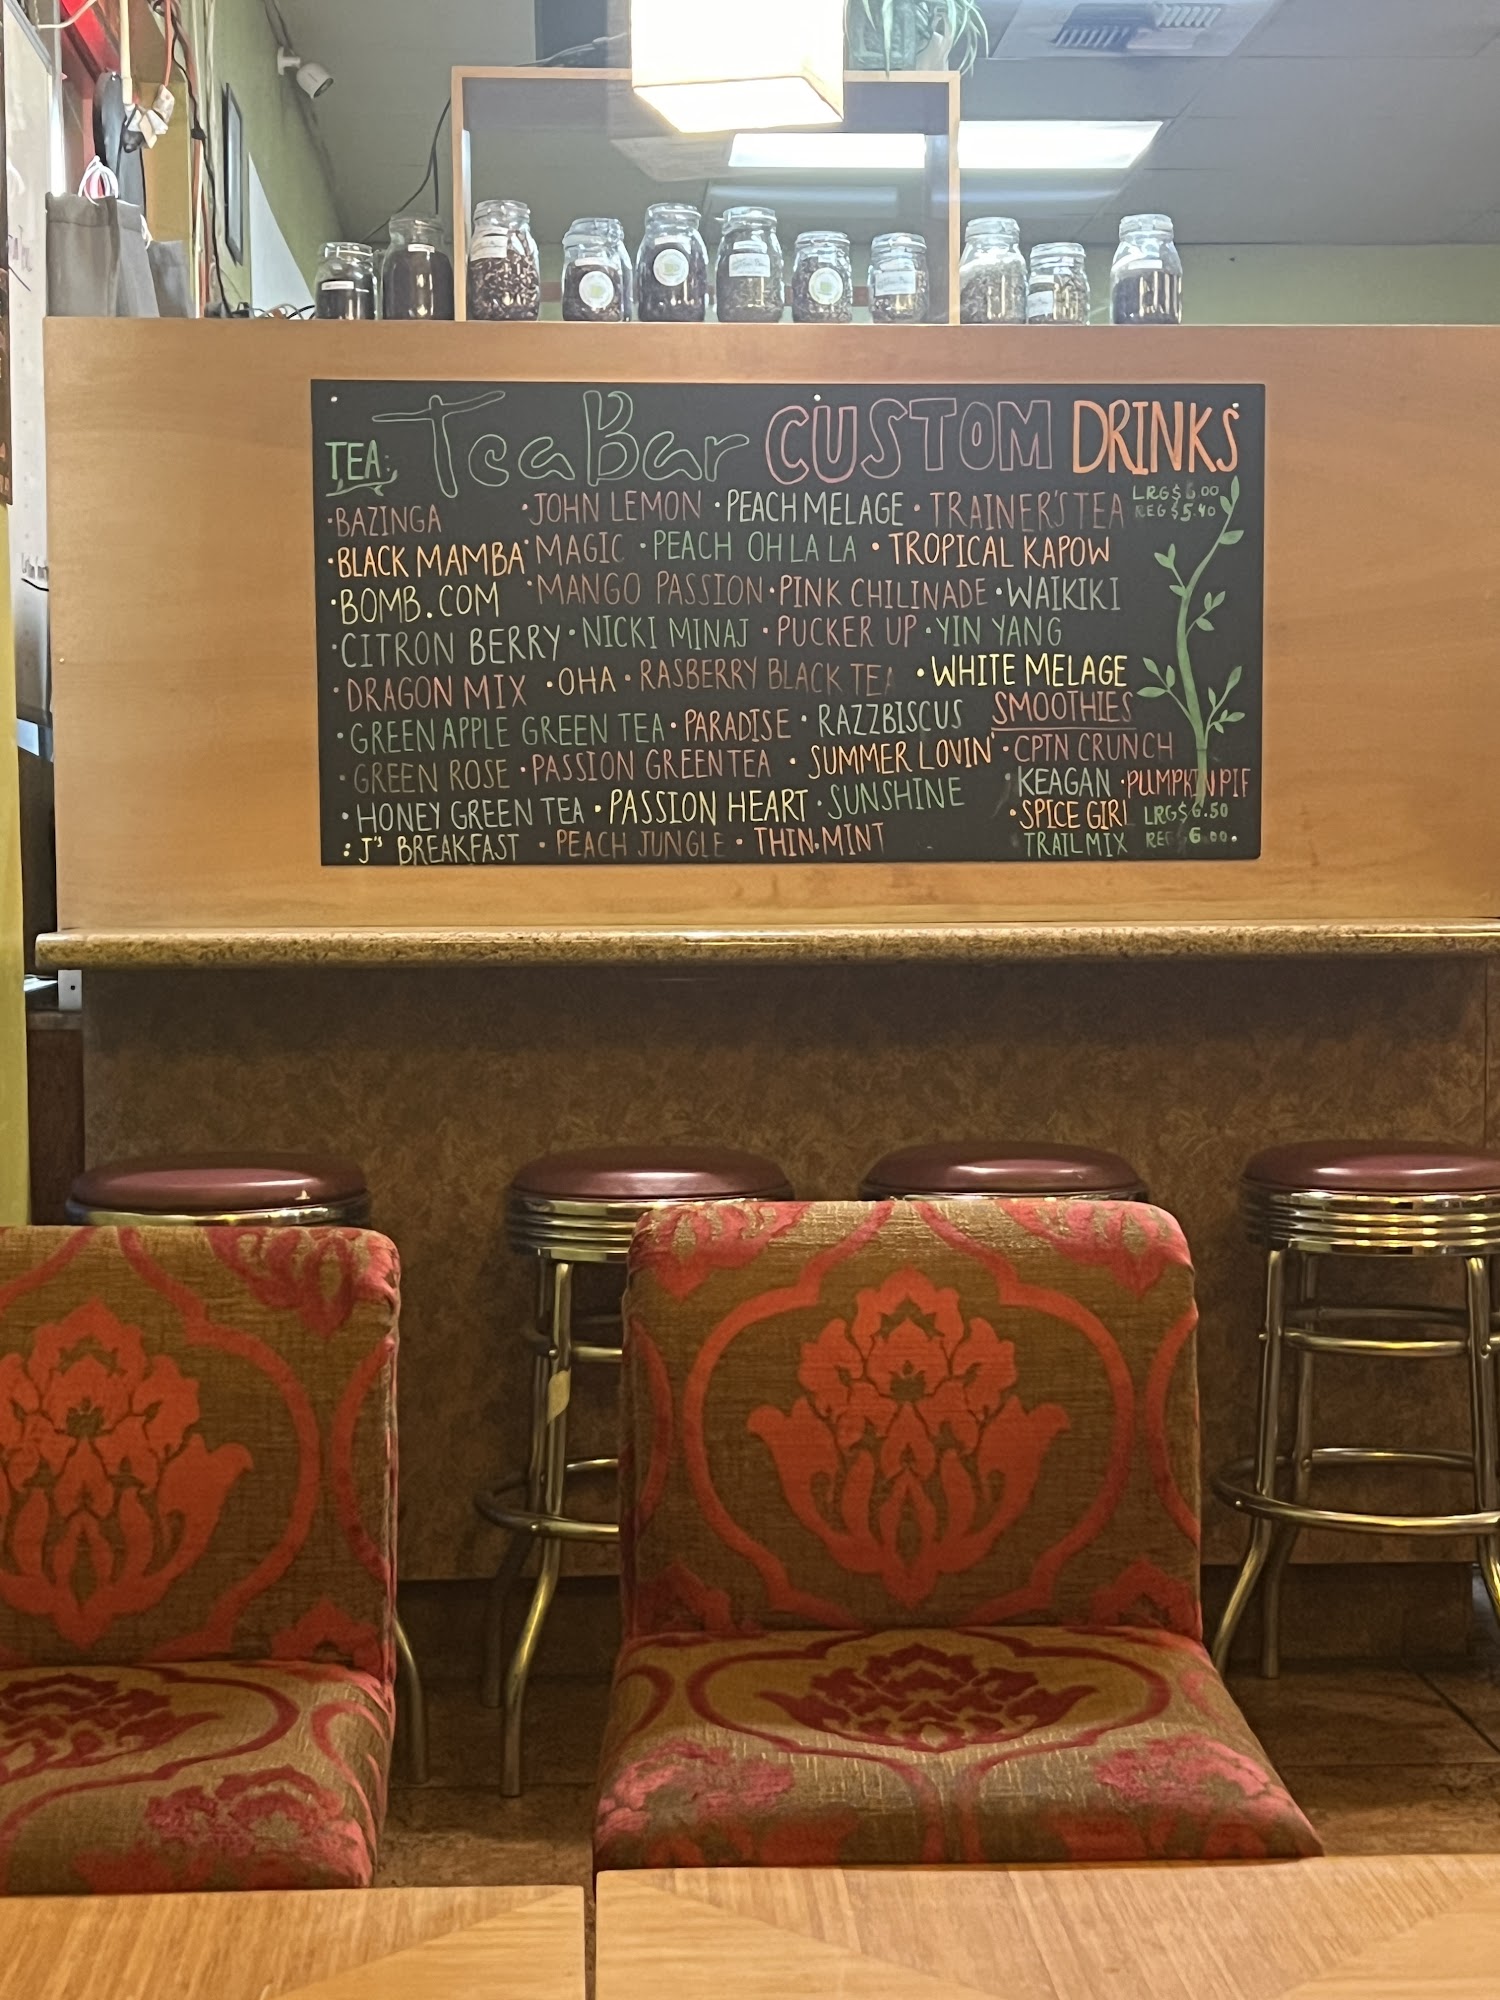 TeaBar CUSTOM DRINKS
TEA:
LRG $ .00
REG $5.40
·BAZINGA ·JOHN LEMON ·PEACH MELAGE ·TRAINER'S TEA
·BLACK MAMBA ·MAGIC ·PEACH OH LA LA ·TROPICAL KAPOW
·BOMB.COM ·MANGO PASSION ·PINK CHILINADE ·WAIKIKI
·CITRON BERRY ·NICKI MINAJ ·PUCKER UP ·YIN YANG
·DRAGON MIX ·OHA ·RASBERRY BLACK TEA ·WHITE MELAGE
·GREEN APPLE GREEN TEA ·PARADISE ·RAZZBISCUS
·GREEN ROSE ·PASSION GREEN TEA ·SUMMER LOVIN'
·HONEY GREEN TEA ·PASSION HEART ·SUNSHINE
:J'S BREAKFAST ·PEACH JUNGLE ·THIN·MINT
SMOOTHIES
·CPTN CRUNCH
KEAGAN ·PUMPKIN PIE
·SPICE GIRL LRG $6.50
TRAILMIX REG 6.00